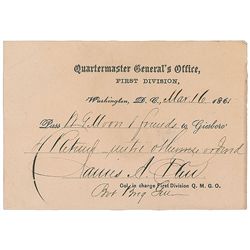 Quartermaster General's Office,
FIRST DIVISION,
Washington, D. C., Mar 16 1861
Pass & friends to Giesboro
& return until otherwise ordered
James A.
Col. in charge First Division Q. M. G. O.
Bvt Brig Gen